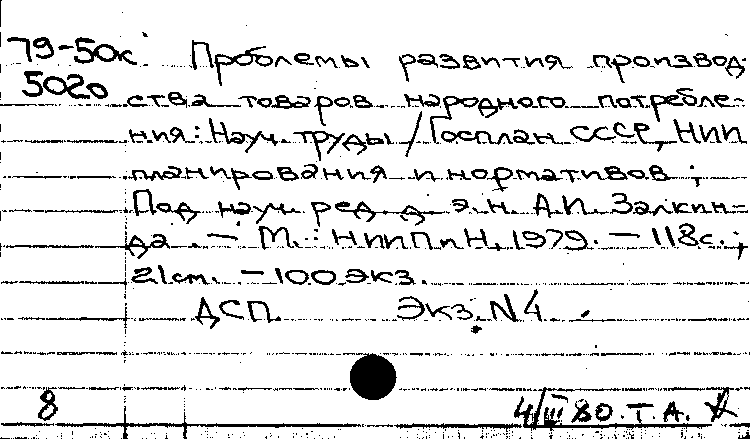 79-50к Проблемы развития производ-
502о ства товаров народного потребле-
ния: Науч. труды / Госплан СССР, НИИ
планирования и нормативов ;
Под науч. ред. д. э. н. А.И. Залкин-
да. — М.: НИИПиН, 1979. — 118с.;
21 cm. — 100 экз.
ДСП. Экз. N 4
8 4/III 80. Т. А.